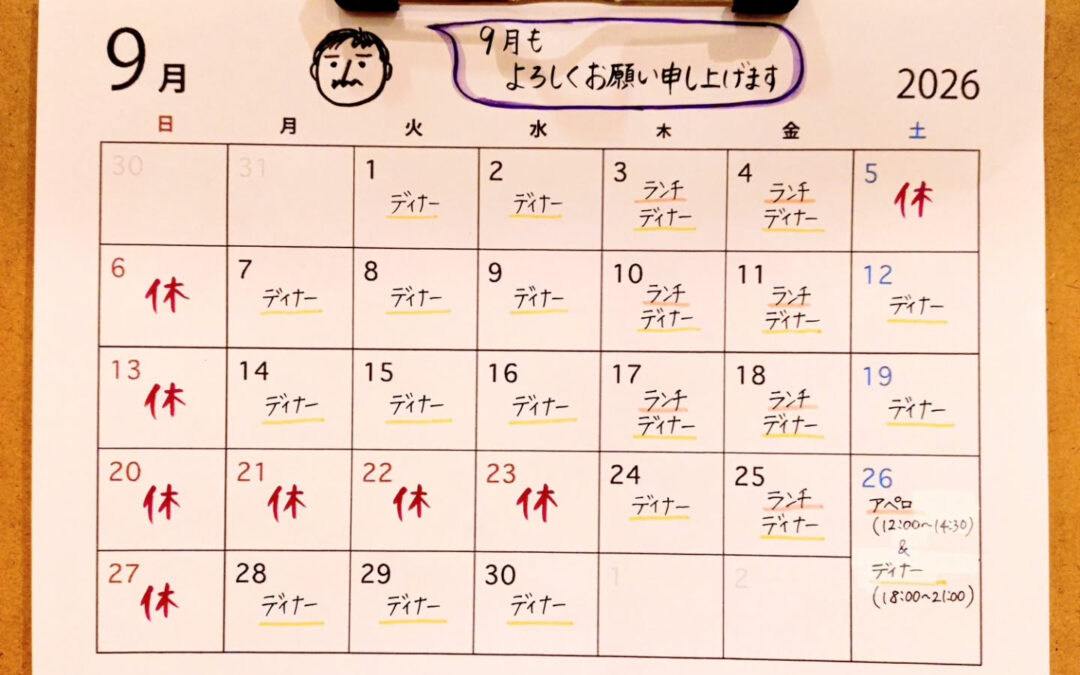 9月
9月も
よろしくお願い申し上げます
2026
日 月 火 水 木 金 土
30 31 1 2 3 4 5
ディナー ディナー ランチ ランチ 休
ディナー ディナー
6 7 8 9 10 11 12
休 ディナー ディナー ディナー ランチ ランチ ディナー
ディナー ディナー
13 14 15 16 17 18 19
休 ディナー ディナー ディナー ランチ ランチ ディナー
ディナー ディナー
20 21 22 23 24 25 26
休 休 休 休 ディナー ランチ アペロ
ディナー (12:00〜14:30)
&
27 28 29 30 1 2 ディナー
休 ディナー ディナー ディナー (18:00〜21:00)